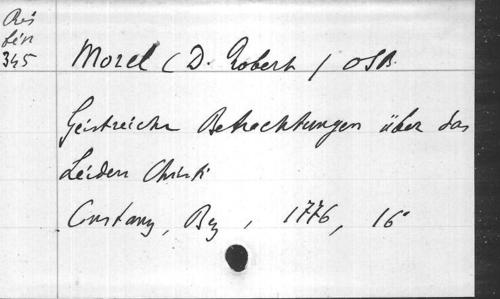 Rés
bén
345
Morel (D. Robert) OSB.
Geistreiche Betrachtungen über das
Leiden Christi
Constanz, Bez, 1776, 16°